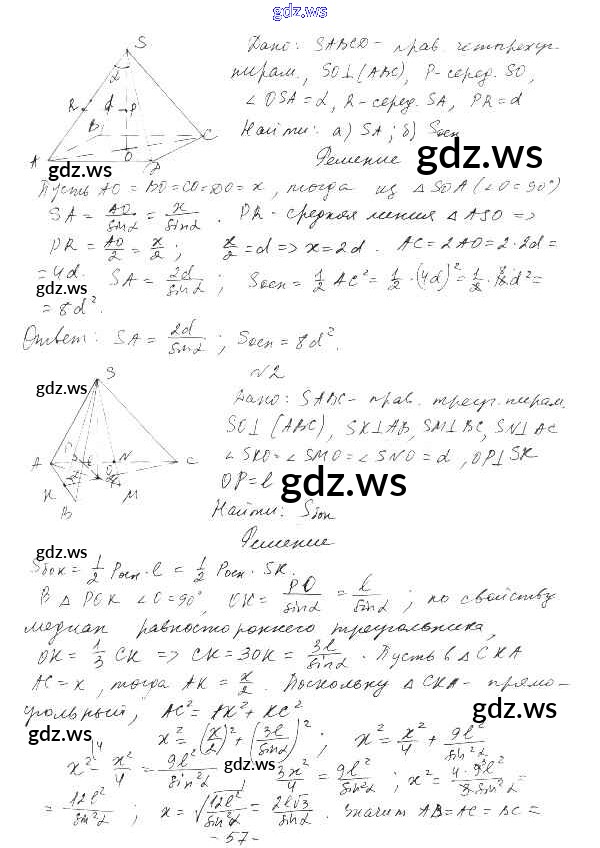 gdz.ws
Дано: SABCD - прав. четырехуг.
пирам., SO⊥(ABC), P-серед. SO,
∠OSA=α, R-серед. SA, PR=d
Найти: а) SA; б) Sосн
gdz.ws
Решение
Пусть AO=BO=CO=DO=x, тогда из △SOA (∠O=90°)
SA = AO/sinα = x/sinα. PR - средняя линия △ASO =>
PR = AO/2 = x/2; x/2 = d => x=2d. AC=2AO=2·2d=
=4d. SA = 2d/sinα; Sосн = 1/2 AC² = 1/2·(4d)² = 1/2·8d² =
gdz.ws
= 8d².
Ответ: SA = 2d/sinα; Sосн = 8d².
№2
gdz.ws
Дано: SABC - прав. треуг. пирам.
SO⊥(ABC), SK⊥AB, SM⊥BC, SN⊥AC
∠SKO=∠SMO=∠SNO=α, OP⊥SK
OP=l
gdz.ws
Найти: Sбок
Решение
gdz.ws
Sбок = 1/2 Pосн·l = 1/2 Pосн·SK.
В △POK ∠O=90°, OK = PO/sinα = l/sinα; по свойству
медиан равностороннего треугольника,
OK = 1/3 CK => CK=3OK = 3l/sinα. Пусть в △CKA
AC=x, тогда AK = x/2. Поскольку △CKA - прямо-
угольный, AC² = AK² + KC²
gdz.ws
gdz.ws
x² = (x/2)² + (3l/sinα)²; x² = x²/4 + 9l²/sin²α
x² - x²/4 = 9l²/sin²α
gdz.ws
3x²/4 = 9l²/sin²α; x² = 4·9l²/3·sin²α =
= 12l²/sin²α; x = √(12l²/sin²α) = 2l√3/sinα. Значит AB=AC=BC=
-57-
gdz.ws